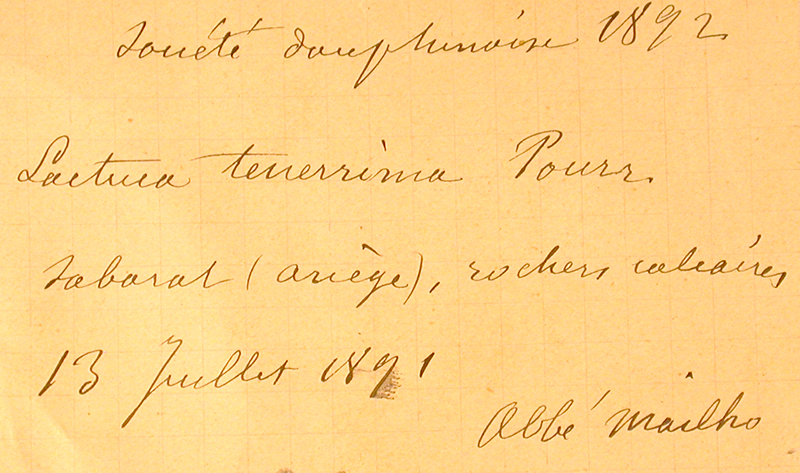 Société dauphinoise 1892
Lactuca tenerrima Pourr.
Sabarat (Ariège), rochers calcaires
13 Juillet 1891
Abbé Mailho